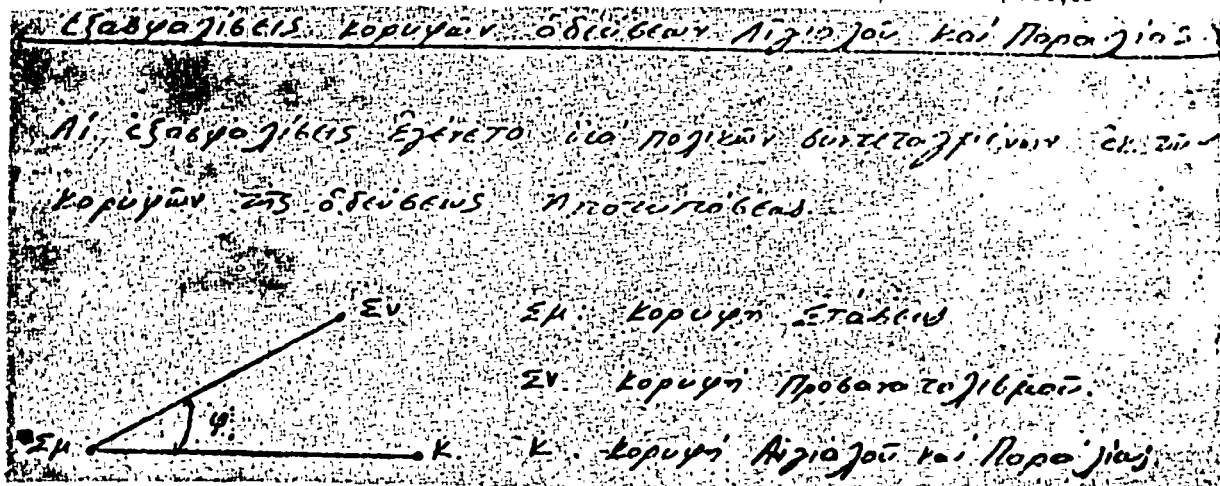 Ἐξασφαλίσεις κορυφῶν ὁδεύσεων Αἰγιαλοῦ καί Παραλίας.
Αἱ ἐξασφαλίσεις ἐγένετο διά πολικῶν συντεταγμένων ἐκ τῶν
κορυφῶν τῆς ὁδεύσεως Ἀποτυπώσεως.
Σν Σμ. κορυφή Στάσεως
Σν. κορυφή Προσανατολισμοῦ.
φ.
Σμ Κ. Κ. κορυφή Αἰγιαλοῦ καί Παραλίας.